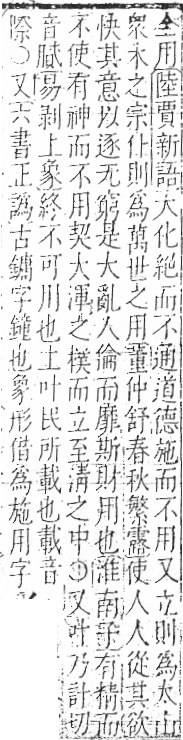 全用陸賈新語大化絶而不通道德施而不用又立則為太山
衆木之宗仆則為萬世之用董仲舒春秋繁露使人人從其欲
快其意以逐无窮是大亂人倫而靡斯財用也淮南子有精而
不使有神而不用契大渾之樸而立至清之中〇又叶乃計切
音膩易剥上象終不可用也上叶民所載也載音
際〇又六書正譌古鏞字鐘也象形借為施用字